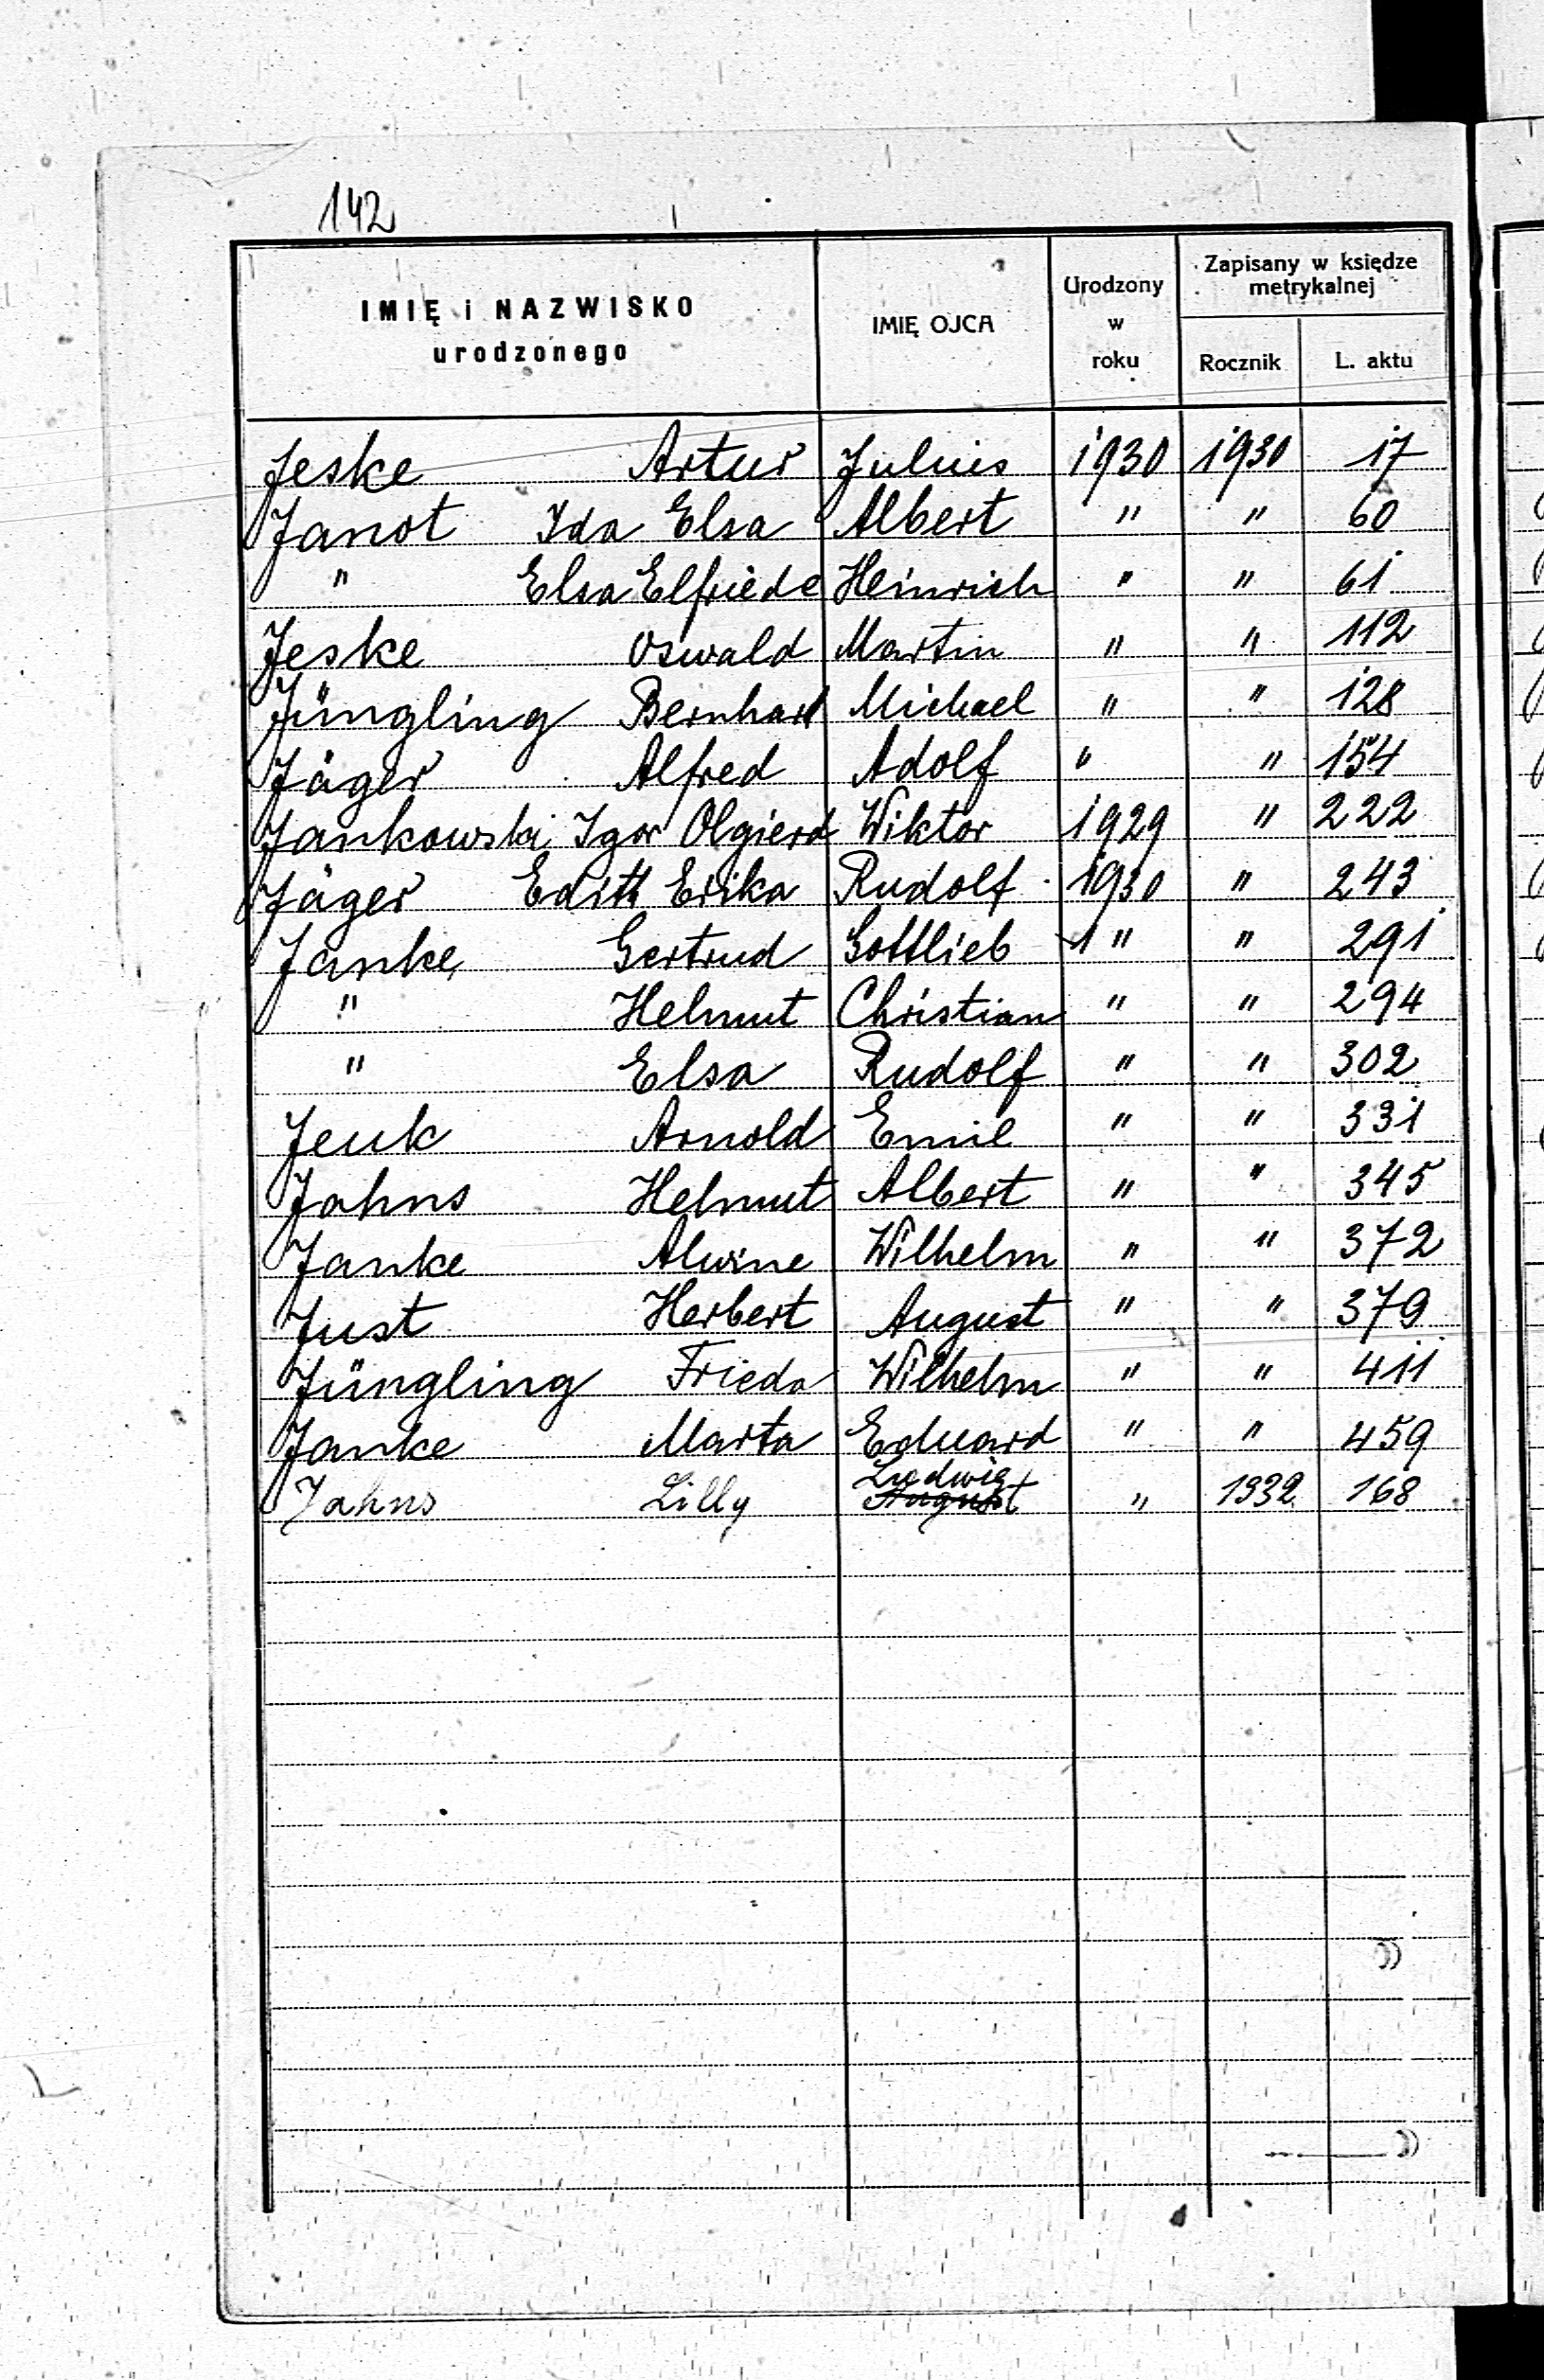 142
IMIĘ i NAZWISKO urodzonego | IMIĘ OJCA | Urodzony w roku | Zapisany w księdze metrykalnej
Rocznik | L. aktu
Jeske Artur Julius 1930 1930 17
Janot Ida Elsa Albert " " 60
" Elsa Elfriede Heinrich " " 61
Jeske Oswald Martin " " 112
Jüngling Bernhard Michael " " 128
Jäger Alfred Adolf " " 154
Jankowski Igor Olgierd Wiktor 1929 " 222
Jäger Edith Erika Rudolf 1930 " 243
Janke Gertrud Gottlieb " " 291
" Helmut Christian " " 294
" Elsa Rudolf " " 302
Jeuk Arnold Emil " " 331
Jahns Helmut Albert " " 345
Janke Alwine Wilhelm " " 372
Just Herbert August " " 379
Jüngling Frieda Wilhelm " " 411
Janke Marta Eduard " " 459
Jahns Lilly Ludwig August " 1932 168